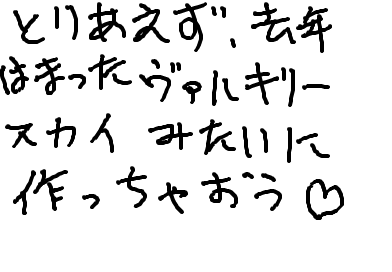 とりあえず、去年
はまったヴァルキリー
スカイ みたいに
作っちゃおう♡